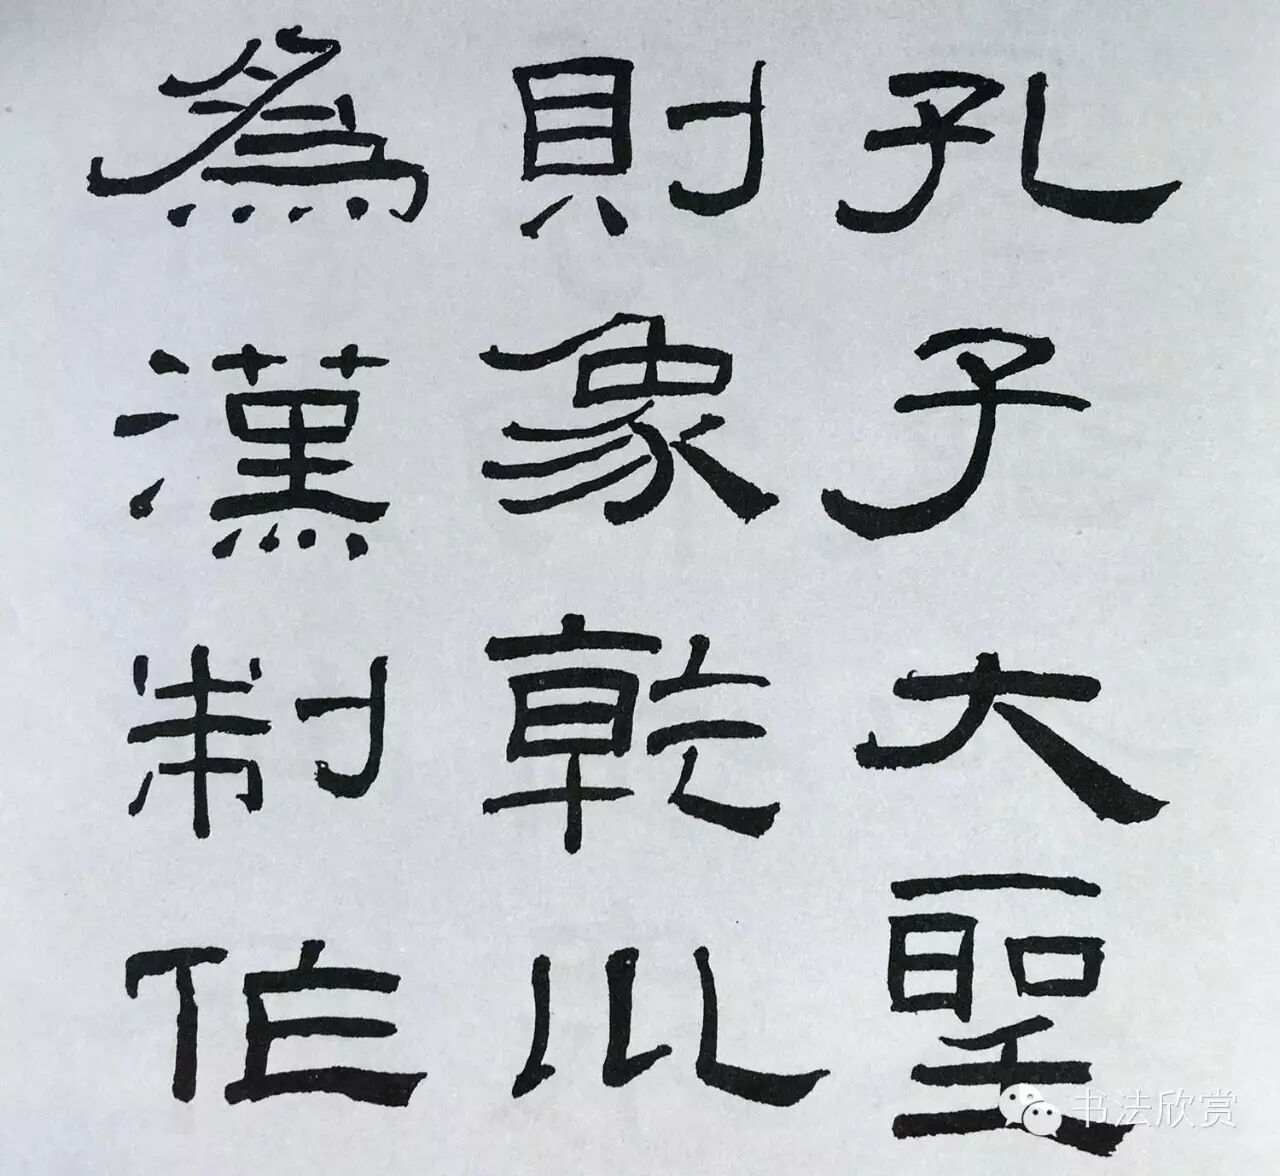 孔子大聖
則象乾川
為漢制作
书法欣赏